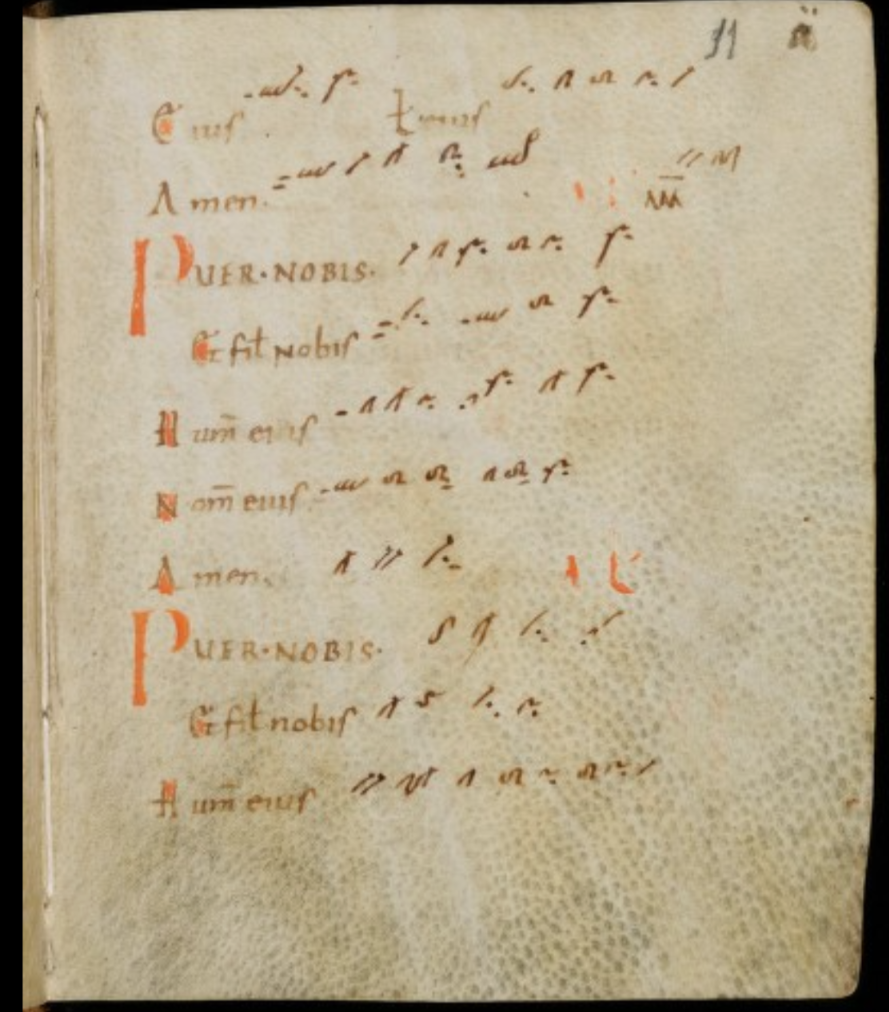 11
Eius ł eius
Amen.
PUER·NOBIS·
Et fił nobis
Hum̄ eius
Nom̄ eius
Amen.
PUER·NOBIS·
Et fił nobis
Hum̄ eius